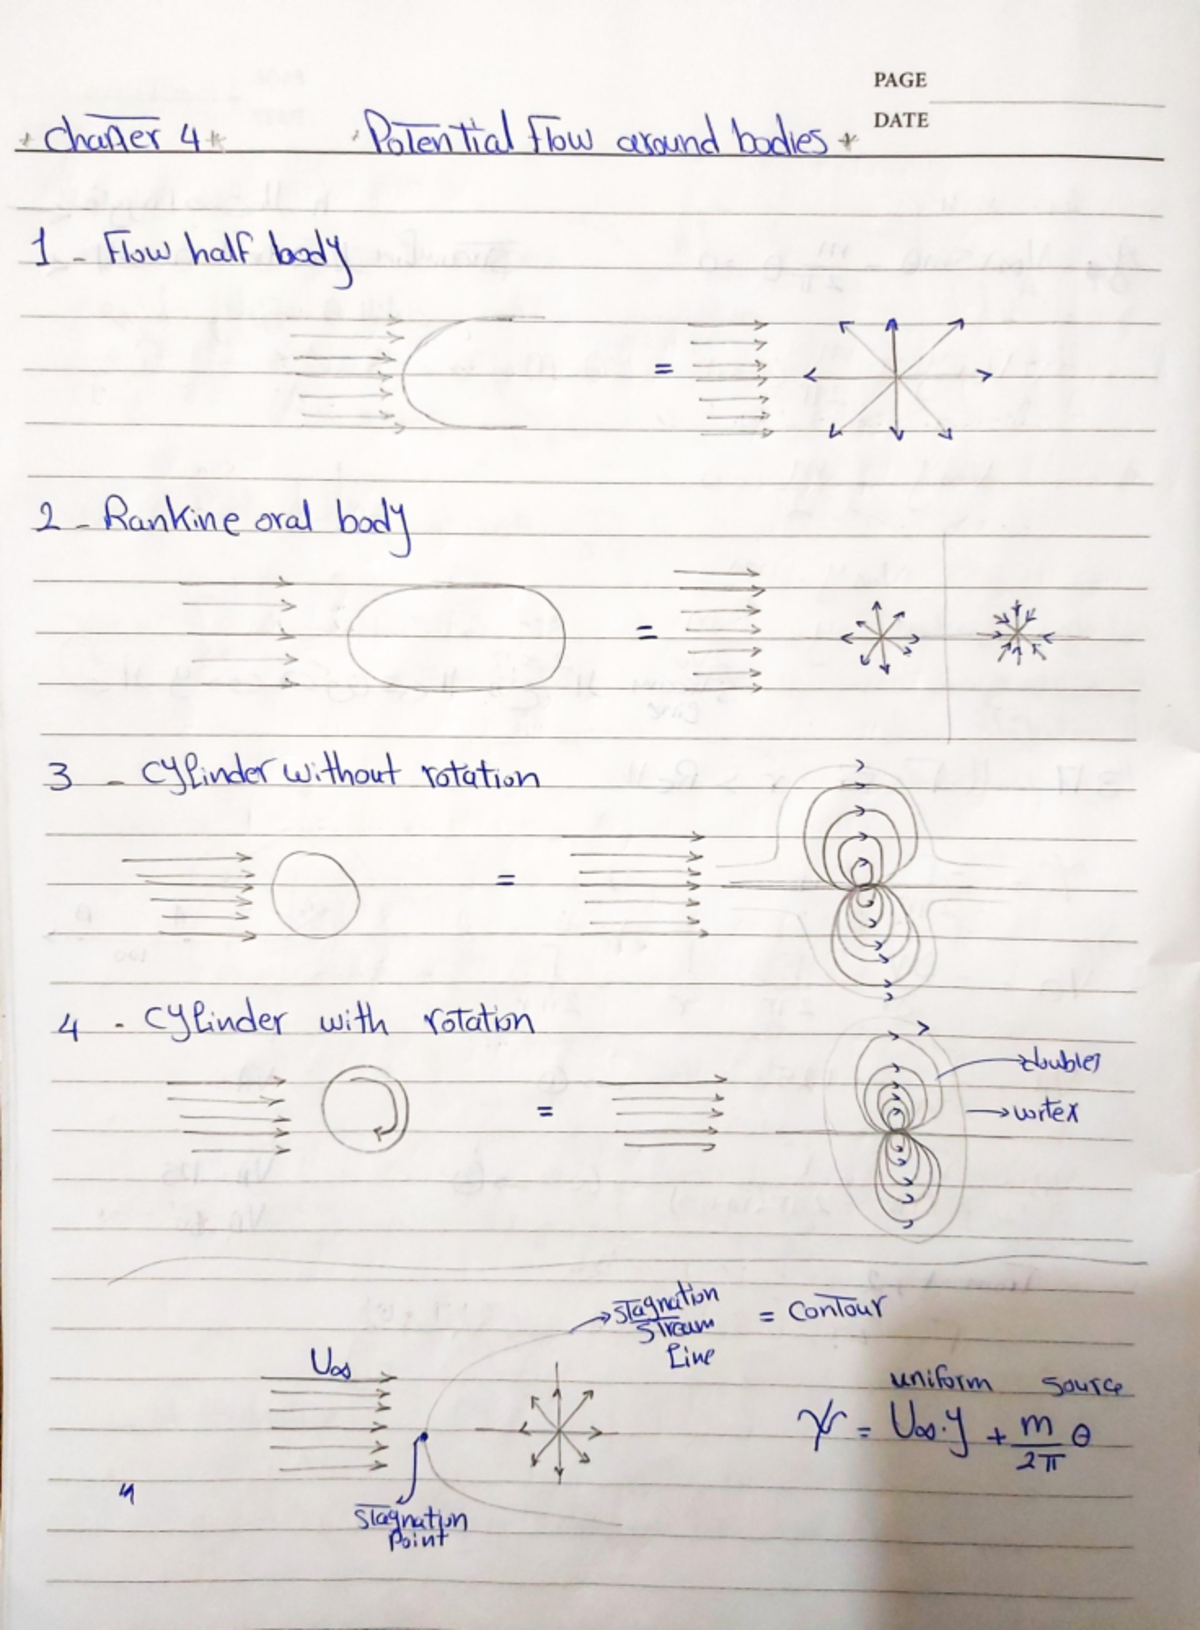 PAGE
DATE
* Chapter 4 * * Potential Flow around bodies *
1 - Flow half body
=
2 - Rankine oral body
=
3 - cylinder without rotation
=
4 - cylinder with rotation
doublet
=
vortex
stagnation
stream
line
= contour
U∞
uniform source
ψ = U∞.y + m/2π θ
stagnation
Point